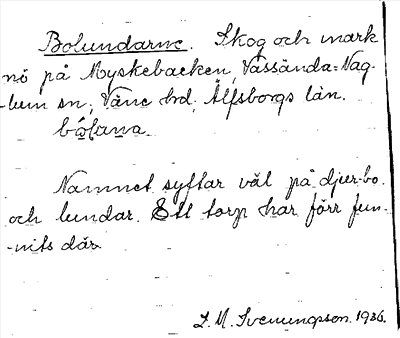 Bolundarne. Skog och mark
nö på Myskebacken, Vassända-Nag-
-lum sn, Väne hd, Älfsborgs län.
Namnet syftar väl på djur-bo
och lundar. Ett torp har förr fun-
-nits där.
S. M. Svenungsson. 1936.